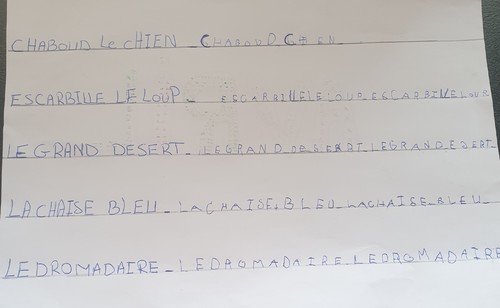 CHABOUD Le CHIEN _ CHABOUD C
ESCARBILLE LE LOUP _ ESCARBILLELELOUP_ESCADBILLELOUP
LE GRAND DESERT _ LEGRAND DESERT_LEGRANDEZERT_
LA CHAISE BLEU _ LACHAISE.BLEU_LACHAISE_BLEU_
LE DROMADAIRE _ LEDROMADAIRE LEDROMADAIRE